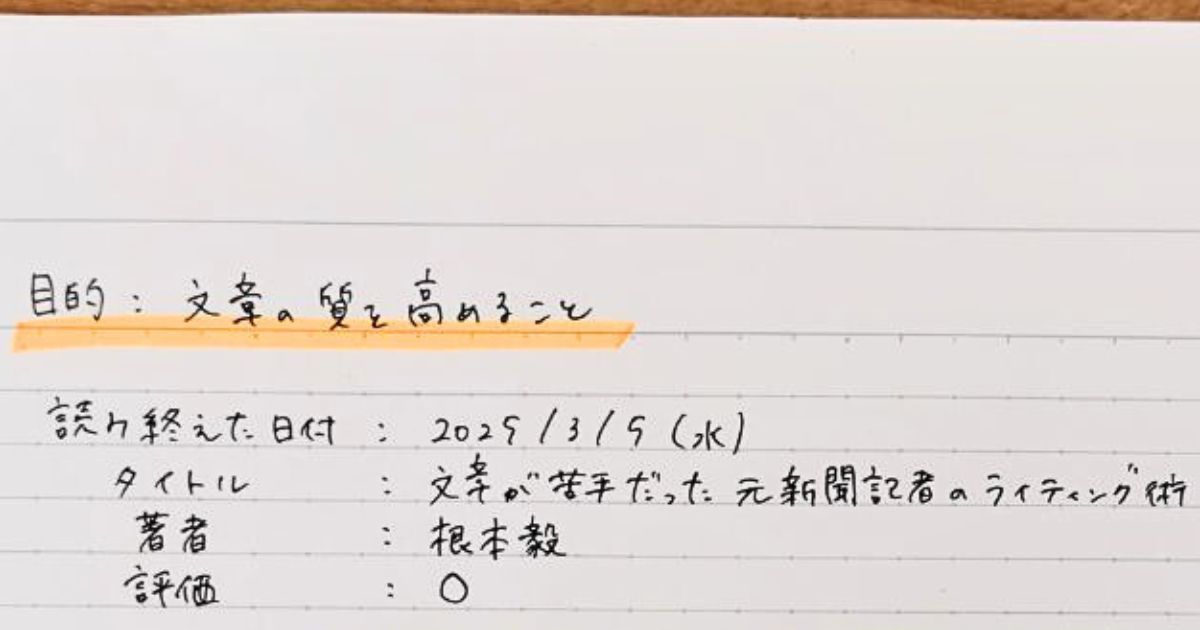 目的：文章の質を高めること
読み終えた日付：2025/3/5（水）
タイトル：文章が苦手だった元新聞記者のライティング術
著者：根本毅
評価：〇